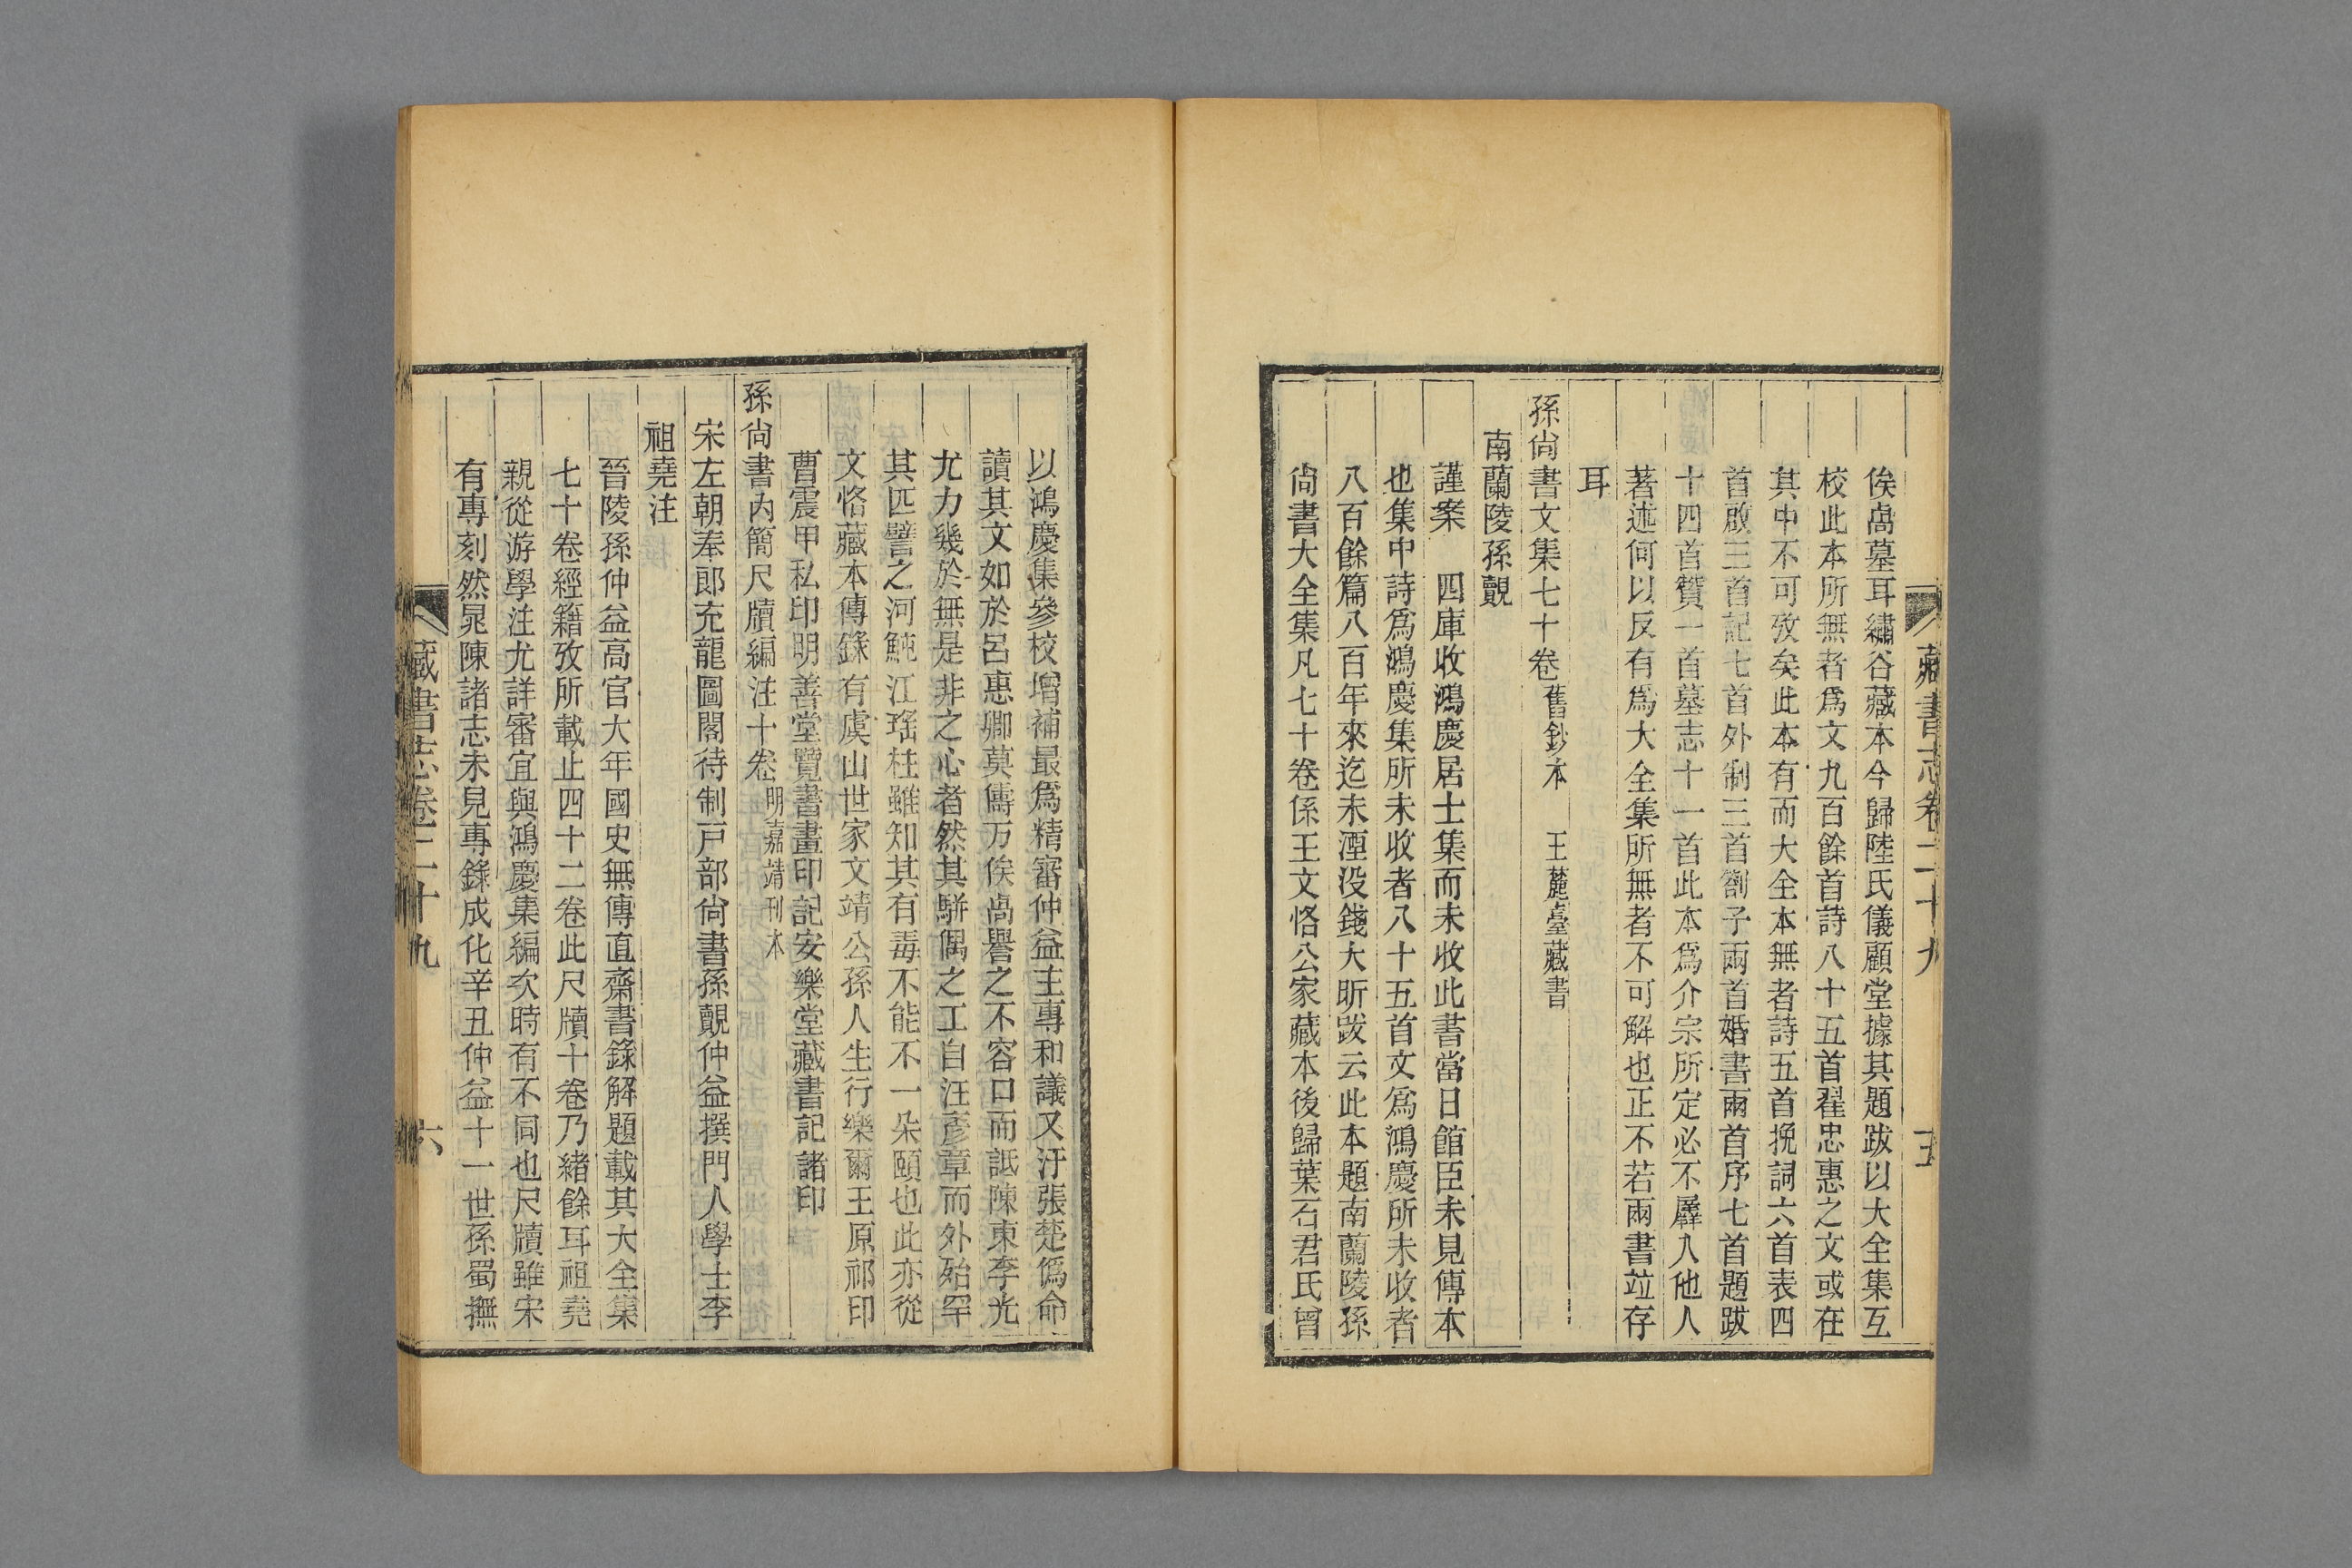 藏書志卷二十九 五
俟卨墓耳繡谷藏本今歸陸氏儀顧堂據其題跋以大全集互
校此本所無者爲文九百餘首詩八十五首翟忠惠之文或在
其中不可攷矣此本有而大全本無者詩五首挽詞六首表四
首啟三首記七首外制三首劄子兩首婚書兩首序七首題跋
十四首贊一首墓志十一首此本爲介宗所定必不羼入他人
著述何以反有爲大全集所無者不可解也正不若兩書竝存
耳
孫尙書文集七十卷 舊鈔本 王麓臺藏書
南蘭陵孫覿
謹案 四庫收鴻慶居士集而未收此書當日館臣未見傳本
也集中詩爲鴻慶集所未收者八十五首文爲鴻慶所未收者
八百餘篇八百年來迄未湮没錢大昕跋云此本題南蘭陵孫
尙書大全集凡七十卷係王文恪公家藏本後歸葉石君氏曾
以鴻慶集參校增補最爲精審仲益主專和議又汙張楚僞命
讀其文如於呂惠卿莫儔万俟卨譽之不容口而詆陳東李光
尤力幾於無是非之心者然其駢偶之工自汪彥章而外殆罕
其匹譬之河魨江瑤柱雖知其有毒不能不一朵頤也此亦從
文恪藏本傳錄有虞山世家文靖公孫人生行樂爾王原祁印
曹震甲私印明善堂覽書畫印記安樂堂藏書記諸印
孫尙書內簡尺牘編注十卷 明嘉靖刊本
宋左朝奉郎充龍圖閣待制戸部尙書孫覿仲益撰門人學士李
祖堯注
晉陵孫仲益高官大年國史無傳直齋書錄解題載其大全集
七十卷經籍攷所載止四十二卷此尺牘十卷乃緒餘耳祖堯
親從游學注尤詳審宜與鴻慶集編次時有不同也尺牘雖宋
有專刻然晁陳諸志未見專錄成化辛丑仲益十一世孫蜀撫
藏書志卷二十九 六